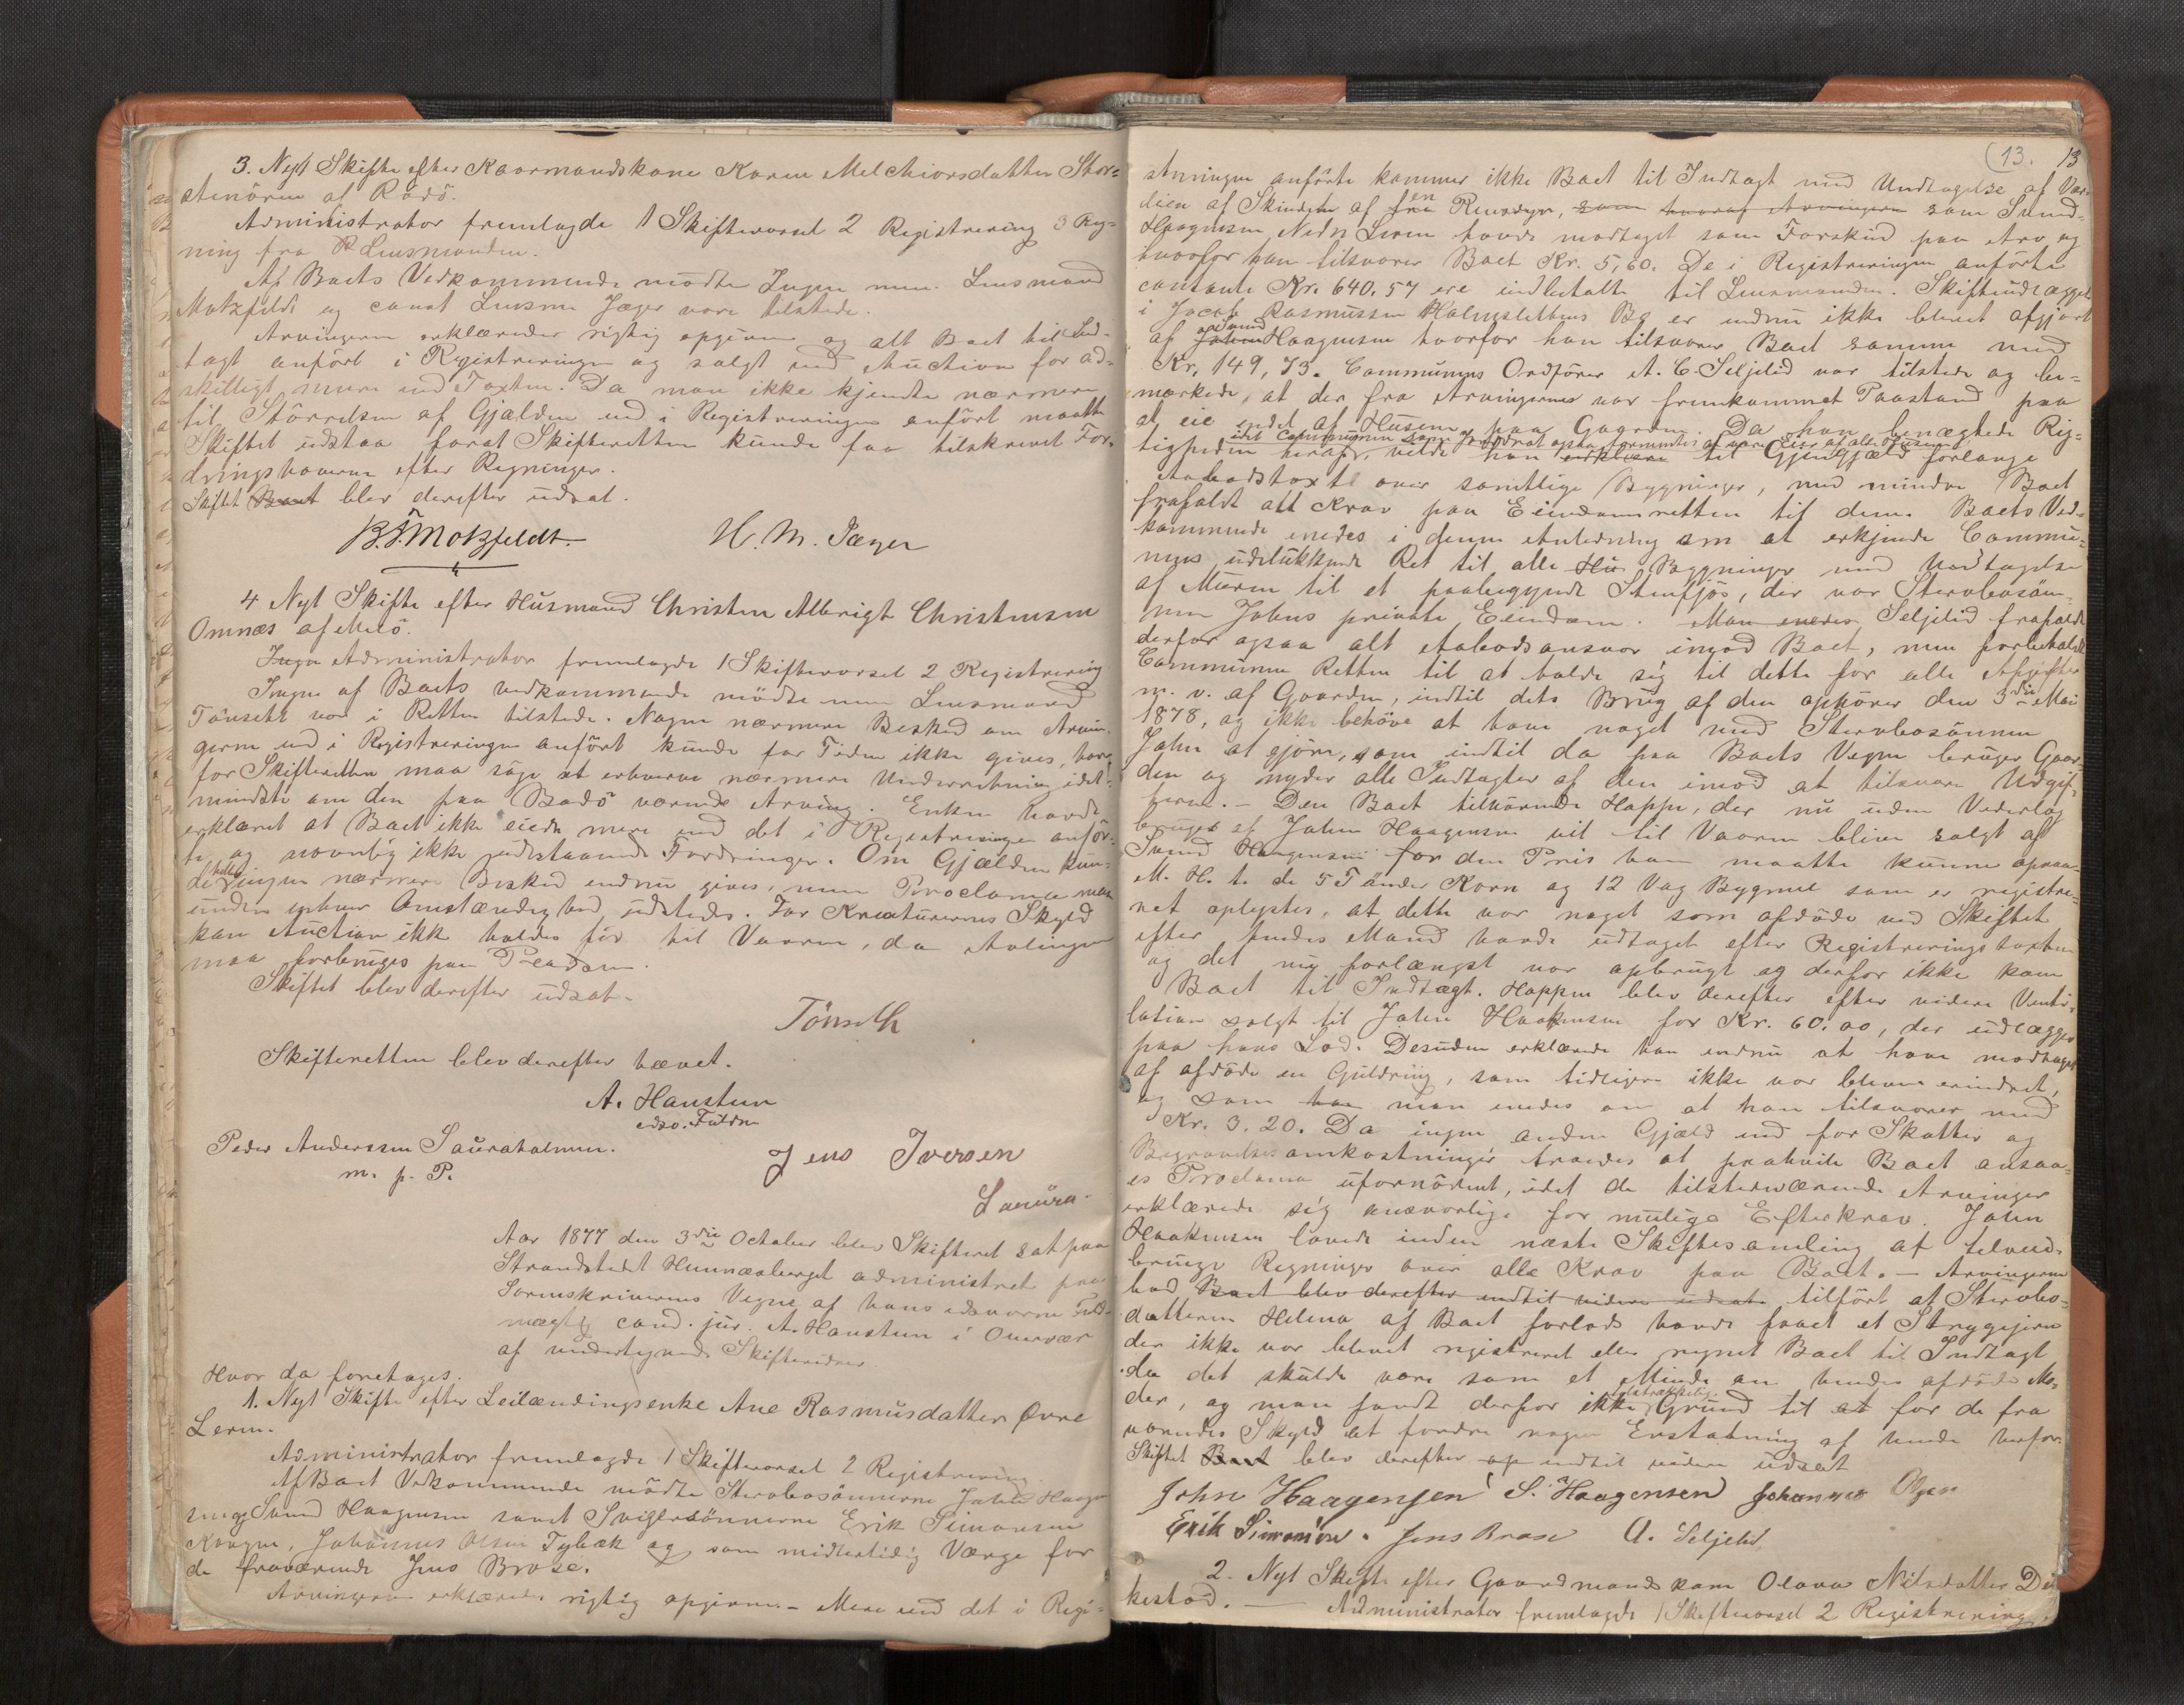 3. Nyt Skifte efter Kaarmandskone Karen Melchiorsdatter Stor-
stenören af Rödö.
Administrator fremlagde 1 Skiftevarsel 2 Registrering 3 Reg-
ning fra Lensmanden.
Af Boets Vedkommende mödte Ingen men Lensmand
Motzfeldt og const Lensm. Jæger vare tilstede.
Arvingerne erklæredes rigtig opgivne og alt Boet til Ind-
tægt anført i Registreringen og solgt ved Auction for ad-
skilligt mere end Taxten. Da man ikke kjendte nærmere
til Störrelsen af Gjælden end i Registreringen anført maatte
Skiftet udstaa forat Skifteretten kunde faa tilskrevet For-
dringshaverne efter Regninger.
Skiftet Boet blev derefter udsat.
B.F. Motzfeldt. H. M. Jæger
4 Nyt Skifte efter Husmand Christen Albrigt Christensen
Omnæs af Melö.
Ingen Administrator fremlagde 1 Skiftevarsel 2 Registrering
Ingen af Boets vedkommende mödte men Lensmand
Tönseth var i Retten tilstede. Nogen nærmere Besked om Arvin-
gerne end i Registreringen anført kunde for Tiden ikke gives, hvor-
for Skifteretten maa söge at erhverve nærmere Underretning idet-
mindste om den paa Bodö værende Arving. Enken havde
erklæret at Boet ikke eiede mere end det i Registreringen anför-
te og navnlig ikke udestaaende Fordringer. Om Gjælden kun-
de heller ingen nærmere Besked endnu gives, men Proclama maa
under enhver Omstændighed udstedes. For Kreaturernes Skyld
kan Auction ikke holdes för til Vaaren, da Avlingen
maa forbruges paa Pladsen.
Skiftet blev derefter udsat.
Tönseth
Skifteretten blev derefter hævet.
A. Hansteen
edsv. Fuldm
Peder Anderssen Sauraholmen.
m. p. P.
Jens Iversen
Saura.
Aar 1877 den 3die October blev Skifteret sat paa
Strandstedet Hunnæsberget administret paa
Sorenskriverens Vegne af hans edsvorne Fuld-
mægtig cand. jur. A. Hansteen i Overvær
af undertegnede Skiftevidner.
Hvor da foretages.
1. Nyt Skifte efter Leilændingsenke Ane Rasmusdatter Övre
Leren.
Administrator fremlagde 1 Skiftevarsel 2 Registrering
Af Boet Vedkommende mödte Stervbosönnerne John Haagen-
sen og Svend Haagensen samt Svigersönnerne Erik Simonsen
Johannes Olsen Tybæk og som midlertidig Værge for
de fraværende Jens Brose.
Arvingerne erklæredes rigtig opgivne. – Mere end det i Regi-
(13. 13
streringen anförte kommer ikke Boet til Indtægt med Undtagelse af Vær-
dien af Skindene af fra en Rensdyr, som hvoraf Arvingerne som Svend
Haagensen Nedre Leren havde modtaget som Forskud paa Arv og
hvorfor han tilsvarer Boet Kr. 5,60. De i Registreringen anförte
contante Kr. 640.57 ere indbetalte til Lensmanden. Skifteudlægget
i Jacob Rasmussen Holmslettens Bo er endnu ikke blevet afgjort
af John Haagensen hvorfor han tilsvarer Boet samme med
Kr. 149,73. Communens Ordförer A. C. Seljelid var tilstede og be-
mærkede, at der fra Arvingerne var fremkommet Paastand paa
at eie endel af Husene paa Gaarden. Da han benægtede Rig-
idet Communen
tigheden heraf, vilde han erklære til Gjengjæld forlange
Aabodstaxt over samtlige Bygninger, med mindre Boet
frafaldt alt Krav paa Eiendomsretten til dem. Boets Ved-
kommende enedes i denne Anledning om at erkjende Commu-
nens udelukkende Ret til alle Hu Bygninger med Undtagelse
af Muren til et paabegyndt Stenfjös, der var Stervbosön-
nen Johns private Eiendom. Man enedes Seljelid frafaldt
derfor ogsaa alt Aabodsansvar imod Boet, men forbeholdt
Communen Retten til at holde sig til dette for alle Afgifter
m. v. af Gaarden, indtil dets Brug af den ophörer den 3die Mai
1878, og ikke behöve at have noget med Stervbosönnen
John at gjöre, som indtil da paa Boets Vegne bruger Gaar-
den og nyder alle Indtægter af den imod at tilsvare Udgif-
terne. – Den Boet tilhörende Hoppe, der nu uden Vederlag
bruges af John Haagensen vil til Vaaren blive solgt af
Svend Haagensen for den Pris han maatte kunne opnaa.
M. H. t. de 5 Tönder Korn og 12 Vog Bygmel som er registre-
ret oplystes, at dette var noget som afdöde ved Skiftet
efter hendes Mand havde udtaget efter Registreringstaxten
og det nu forlængst var opbrugt og derfor ikke kom
Boet til Indtægt. Hoppen blev derefter efter videre Venti-
lation solgt til John Haakensen for Kr. 60.00, der udlægges
paa hans Lod. Desuden erklærede han endnu at have modtaget
af afdöde en Guldring, som tidligere ikke var bleven erindret,
og som han man enedes om at han tilsvarer med
Kr. 3.20. Da ingen anden Gjæld end for Skatter og
Begravelsesomkostninger troedes at paahvile Boet ansaa-
es Proclama ufornödent, idet de tilstedeværende Arvinger
erklærede sig ansvarlige for mulige Efterkrav. John
Haakensen lovede inden næste Skiftesamling at tilveie-
bringe Regninger over alle Krav paa Boet. – Arvingerne
bad Boet blev derefter indtil videre udsat tilfört at Stervbo-
datteren Helena af Boet forlods havde faaet et Strygejern
der ikke var blevet registreret eller regnet Boet til Indtægt
da det skulde være som et Minde om hendes afdöde Mo-
der, og man fandt derfor ikke tilstrækkelig Grund til at for de fra
værendes Skyld at fordre nogen Erstatning af hende herfor
Skiftet Boet blev derefter op indtil videre udsat
John Haagensen S. Haagensen Johannes Olsen
Erik Simonsen. Jens Brose A. Seljelid
2. Nyt Skifte efter Gaardmandskone Olava Nilsdatter
kestad. – Administrator fremlagde 1 Skiftevarsel 2 Registrering.